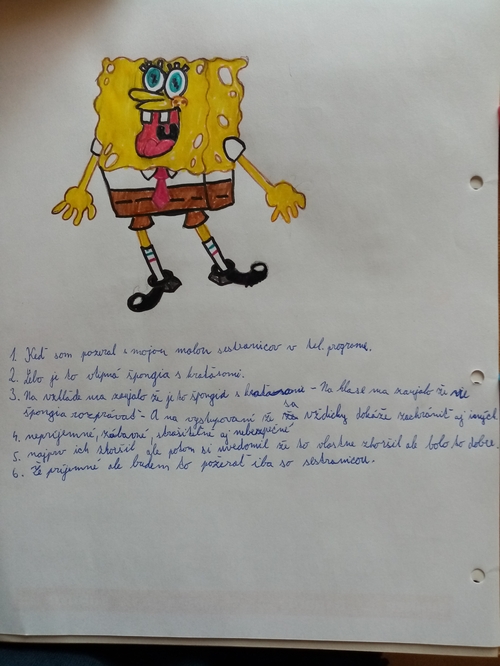 1. Keď som pozeral s mojou malou sestranicou v tel. programe.
2. Lebo je to vtipná špongia s kraťasomi.
3. Na vzhľade ma zaujalo že je to špongia s - Na hlase ma zaujalo že vie
špongia rozprávať - A na vystupovaní že sa vždicky dokáže zachrániť aj iných
4. nepríjemné, zábavné, strašiteľné aj nebezpečné
5. najprv ich skoršil, ale potom si uvedomil že to vlastne zhoršil ale bolo to dobre.
6. Že príjemné ale budem to pozerať iba so sestranicou.